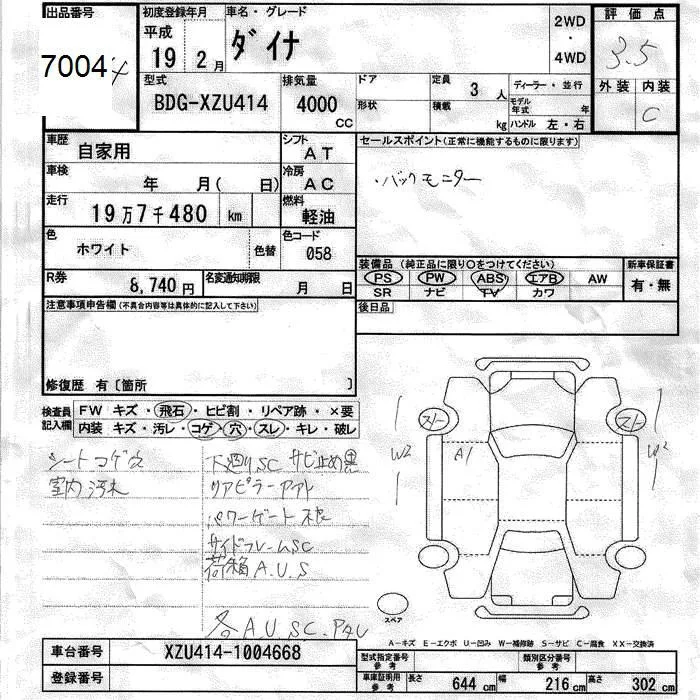 出品番号 初度登録年月 車名・グレード 評価点
7004 平成 19 2月 ダイナ 2WD・4WD 3.5
外装 内装 C
型式 BDG-XZU414 排気量 4000 CC ドア 形状 定員 3人 積載 kg ディーラー・並行 モデル年式 年 ハンドル 左・右
車歴 自家用 シフト AT セールスポイント(正常に機能するものに限ります)
車検 年 月( 日) 冷房 AC ・バックモニター
走行 19万7千480 km 燃料 軽油
色 ホワイト 色替 色コード 058
装備品 (純正品に限り○をつけてください) 新車保証書
PS PW ABS エアB AW 有・無
SR ナビ TV カワ
R券 8,740円 名変通知期限 月 日
後日品
注意事項申告欄(不具合内容等は具体的に記入して下さい)
修復歴 有〔箇所 〕
検査員記入欄 FW キズ・飛石・ヒビ割・リペア跡・×要
内装 キズ・汚レ・コゲ・穴・スレ・キレ・破レ
シートコゲ穴 下廻りSC サビ止め黒
室内汚れ
サイドフレームSC
荷箱A.U.S
各A.U.SC.
スト スト
W2 A1 W2
スペア
A-キズ E-エクボ U-凹み W-補修跡 S-サビ C-腐食 XX-交換済
車台番号 XZU414-1004668 型式指定番号 参考 類別区分番号 参考
登録番号 車庫証明用 参考 長さ 644 cm 幅 216 cm 高さ 302 cm